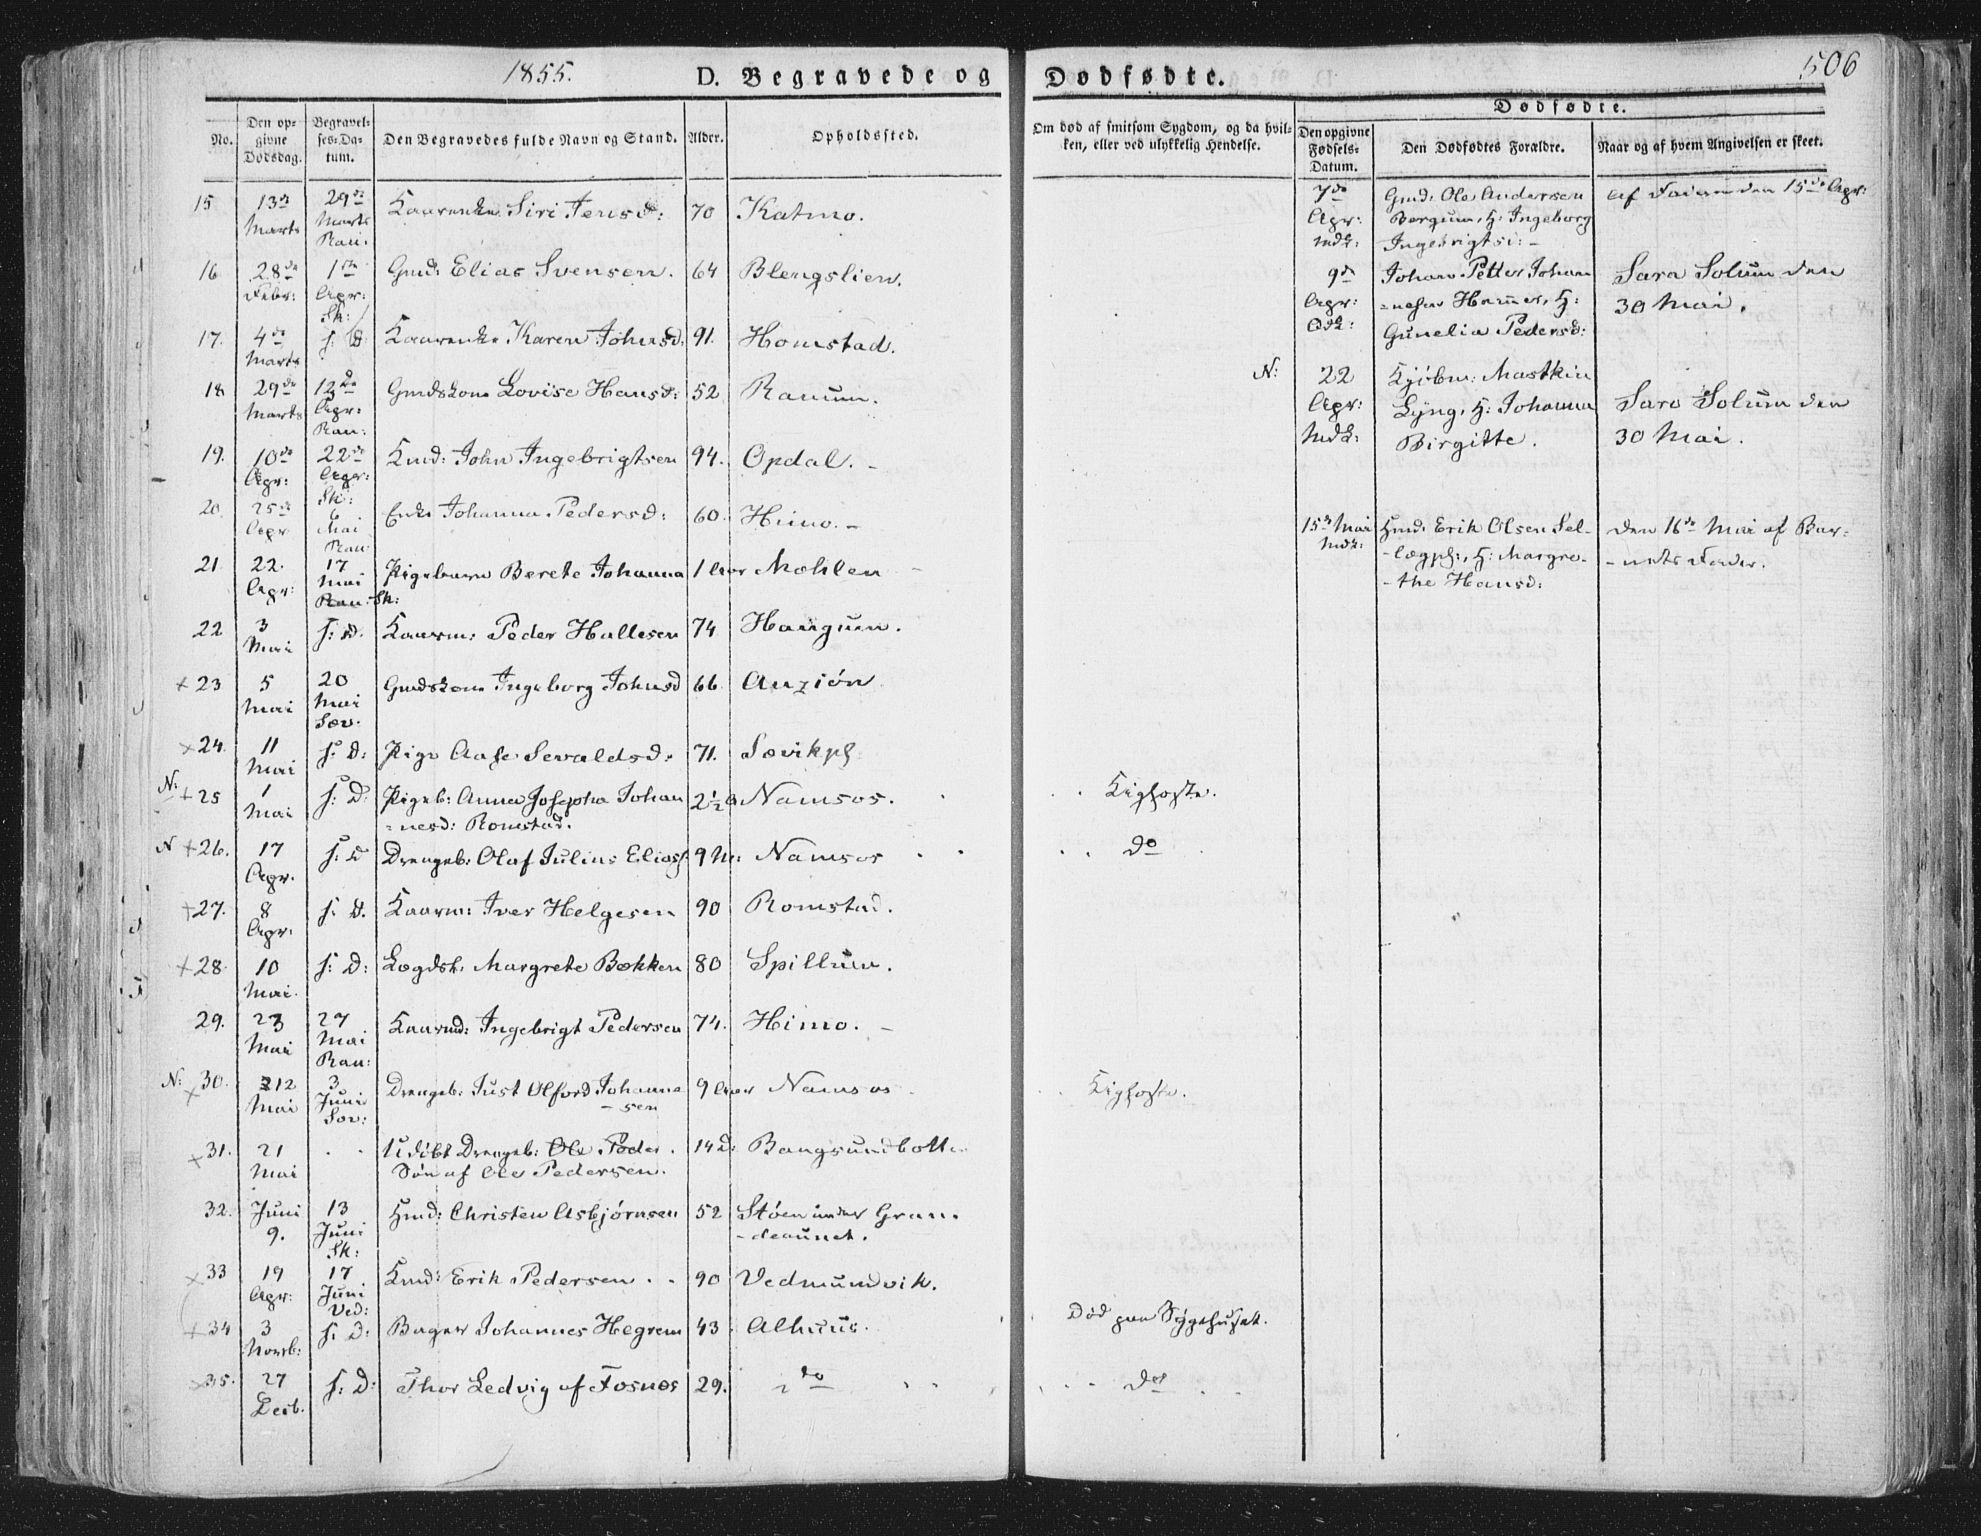 1855.
D. Begravede og
Dødfødte.
506
No.
Den opgivne Dødsdag.
Begravelses-Datum.
Den Begravedes fulde Navn og Stand.
Alder.
Opholdssted.
Om død af smitsom Sygdom, og da hvilken, eller ved ulykkelig Hendelse.
Dødfødte.
Den opgivne Fødsels-Datum.
Den Dødfødtes Forældre.
Naar og af hvem Angivelsen er skeet.
15 13de Marts 29de Marts Ran: Kaarenke Siri Jensd: 70 Katmo.
16 28de Febr: 1ste Apr: Sk: Gmd: Elias Svensen. 64 Blengslien.
17. 4de Marts s. D: Kaarenke Karen Johnsd: 91. Homstad.
18 29de Marts Apr: Ran: Gmdskone Lovise Hansd: 52 Ranum.
19. 10de Apr: 22de Apr: Sk: Kmd: John Ingebrigtsen 94. Opdal.
20. 25de Apr 6 Mai Ran: Enke Johanna Pedersd: 60. Himo.
21. 22. Apr: 17 Mai Sk: Pigebarn Berete Johanna 1 Aar Mohlen
22 3 Mai s: D. Kaarm: Peder Hallesen 74 Haugum.
+ 23 5 Mai 20 Mai Sæv. Gmdskone Ingeborg Johnsd 66. Auziön
+ 24. 11 Mai s: D: Pige Aase Sevaldsd: 71. Sævikpl.
N: + 25 1 Mai s: D: Pigeb: Anna Josepha Johan
=nesd: Romstad. 2½ Namsos. Kighoste.
N + 26. 17 Apr. s: D Drengeb: Olaf Julius Eliass 9 M: Namsos do
+ 27. 8 Apr: s. D. Kaarm: Iver Helgesen 90 Romstad.
+ 28. 10 Mai. s: D: Lægdsl: Margrete Bækken 80 Spillum.
29. 23 Mai 27 Mai Ran: Kaarmd: Ingebrigt Pedersen 74. Himo.
N: + 30. 12 Mai 3 Juni Sæv: Drengeb: Just Olford Johanne
-sen 9 Aar Namsos Kighoste.
+ 31. 21 Mai Udöbt Drengeb: Ole Peder.
Søn af Ole Pedersen. 14 D: Bangsundbotte
32. Juni 9. 13 Juni Sk: Hmd: Christen Asbjørnsen 52 Støen under Gran-
-deaunet.
+ 33 19 Apr: 17 Juni Ved: Kmd: Erik Pedersen 90 Vedmundvik.
+ 34 3 Novb: s: D: Bager Johannes Hegrem 43 Alhuus. Död paa Sygehuset.
+ 35. 27 Decb. s: D: Thor Ledvig af Fosnes 29. do do
7de Apr: Mdk: Gmd: Ole Andersen
Bergum, H: Ingeborg
Ingebrigtsd:
Af Faderen den 15de Apr:
9de Apr: Qdk: Johan Petter Johan
=nesen Hammer, H:
Gunelia Pedersd:
Sara Solum den
30 Mai.
N: 22 Apr: Mdk: Kjöbm: Mastkin
Lyng, H: Johanna
Birgitte.
Sara Solum den
30 Mai.
15de Mai Mdk: Hmd: Erik Olsen Sel-
-lægpl:, H: Margre-
-the Hansd:
den 16de Mai af Bar-
-nets Fader.